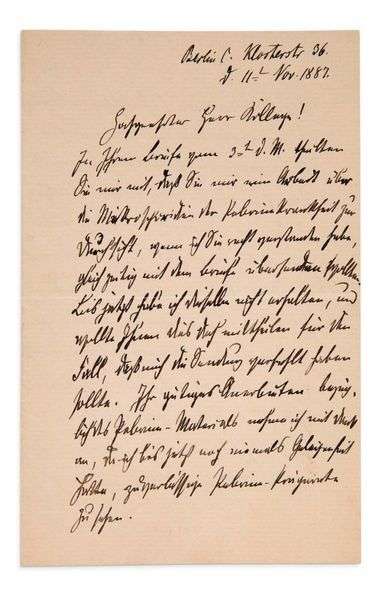 Berlin C. Klosterstr 36.
d. 11t Nov. 1887.
Hochgeehrter Herr Kollege!
In Ihrem Briefe vom 3t d. M. theilten
Sie mir mit, daß Sie mir eine Arbeit über
die der Pebrinekrankheit zur
Durchsicht, wenn ich Sie recht verstanden habe,
gleichzeitig mit dem Briefe übersenden wollten.
Bis jetzt habe ich dieselbe nicht erhalten, und
wollte Ihnen dies doch mittheilen für den
Fall, daß mich die Sendung verfehlt haben
sollte. Ihr gütiges Anerbieten bezüg-
lich des Pebrine-Materials nehme ich mit Dank
an, da ich bis jetzt noch niemals Gelegenheit
hatte, zuverlässige Pebrine-Präparate
zu sehen.